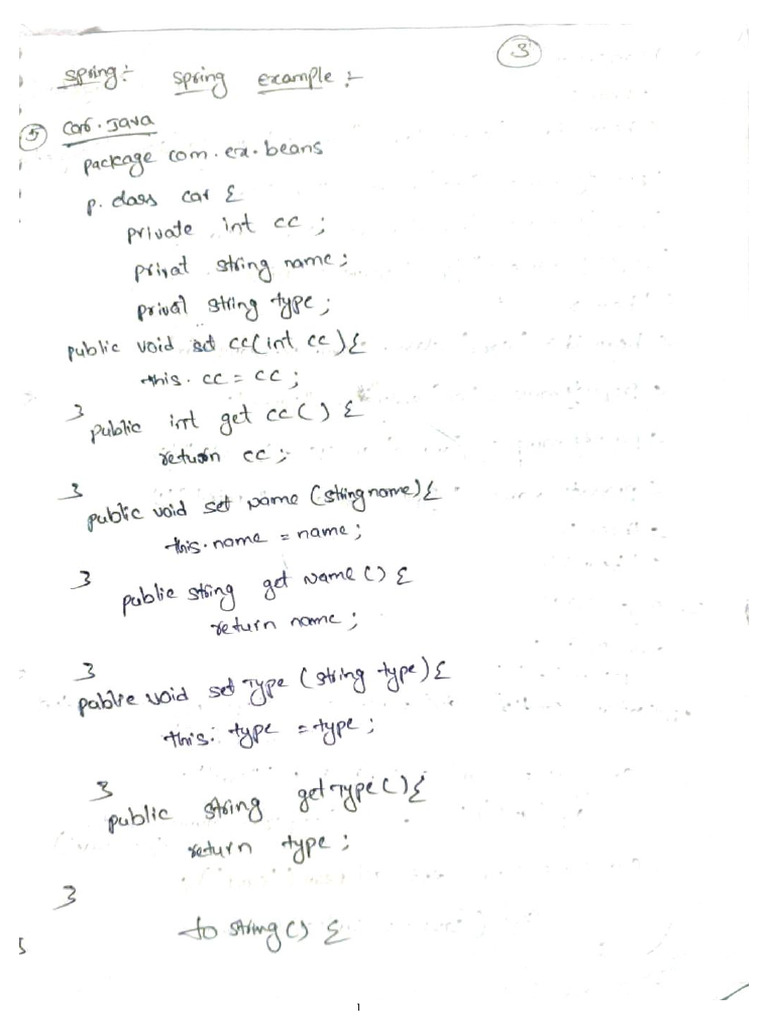 3
spring:- spring example :-
5 car.java
package com.ex.beans
p. class car {
private int cc ;
privat string name ;
privat string type ;
public void set cc(int cc) {
this. cc = cc ;
}
public int get cc () {
return cc ;
}
public void set name (string name) {
this.name = name ;
}
public string get name () {
return name ;
}
public void set Type (string type) {
this. type = type ;
}
public string get Type () {
return type ;
}
to string () {
1